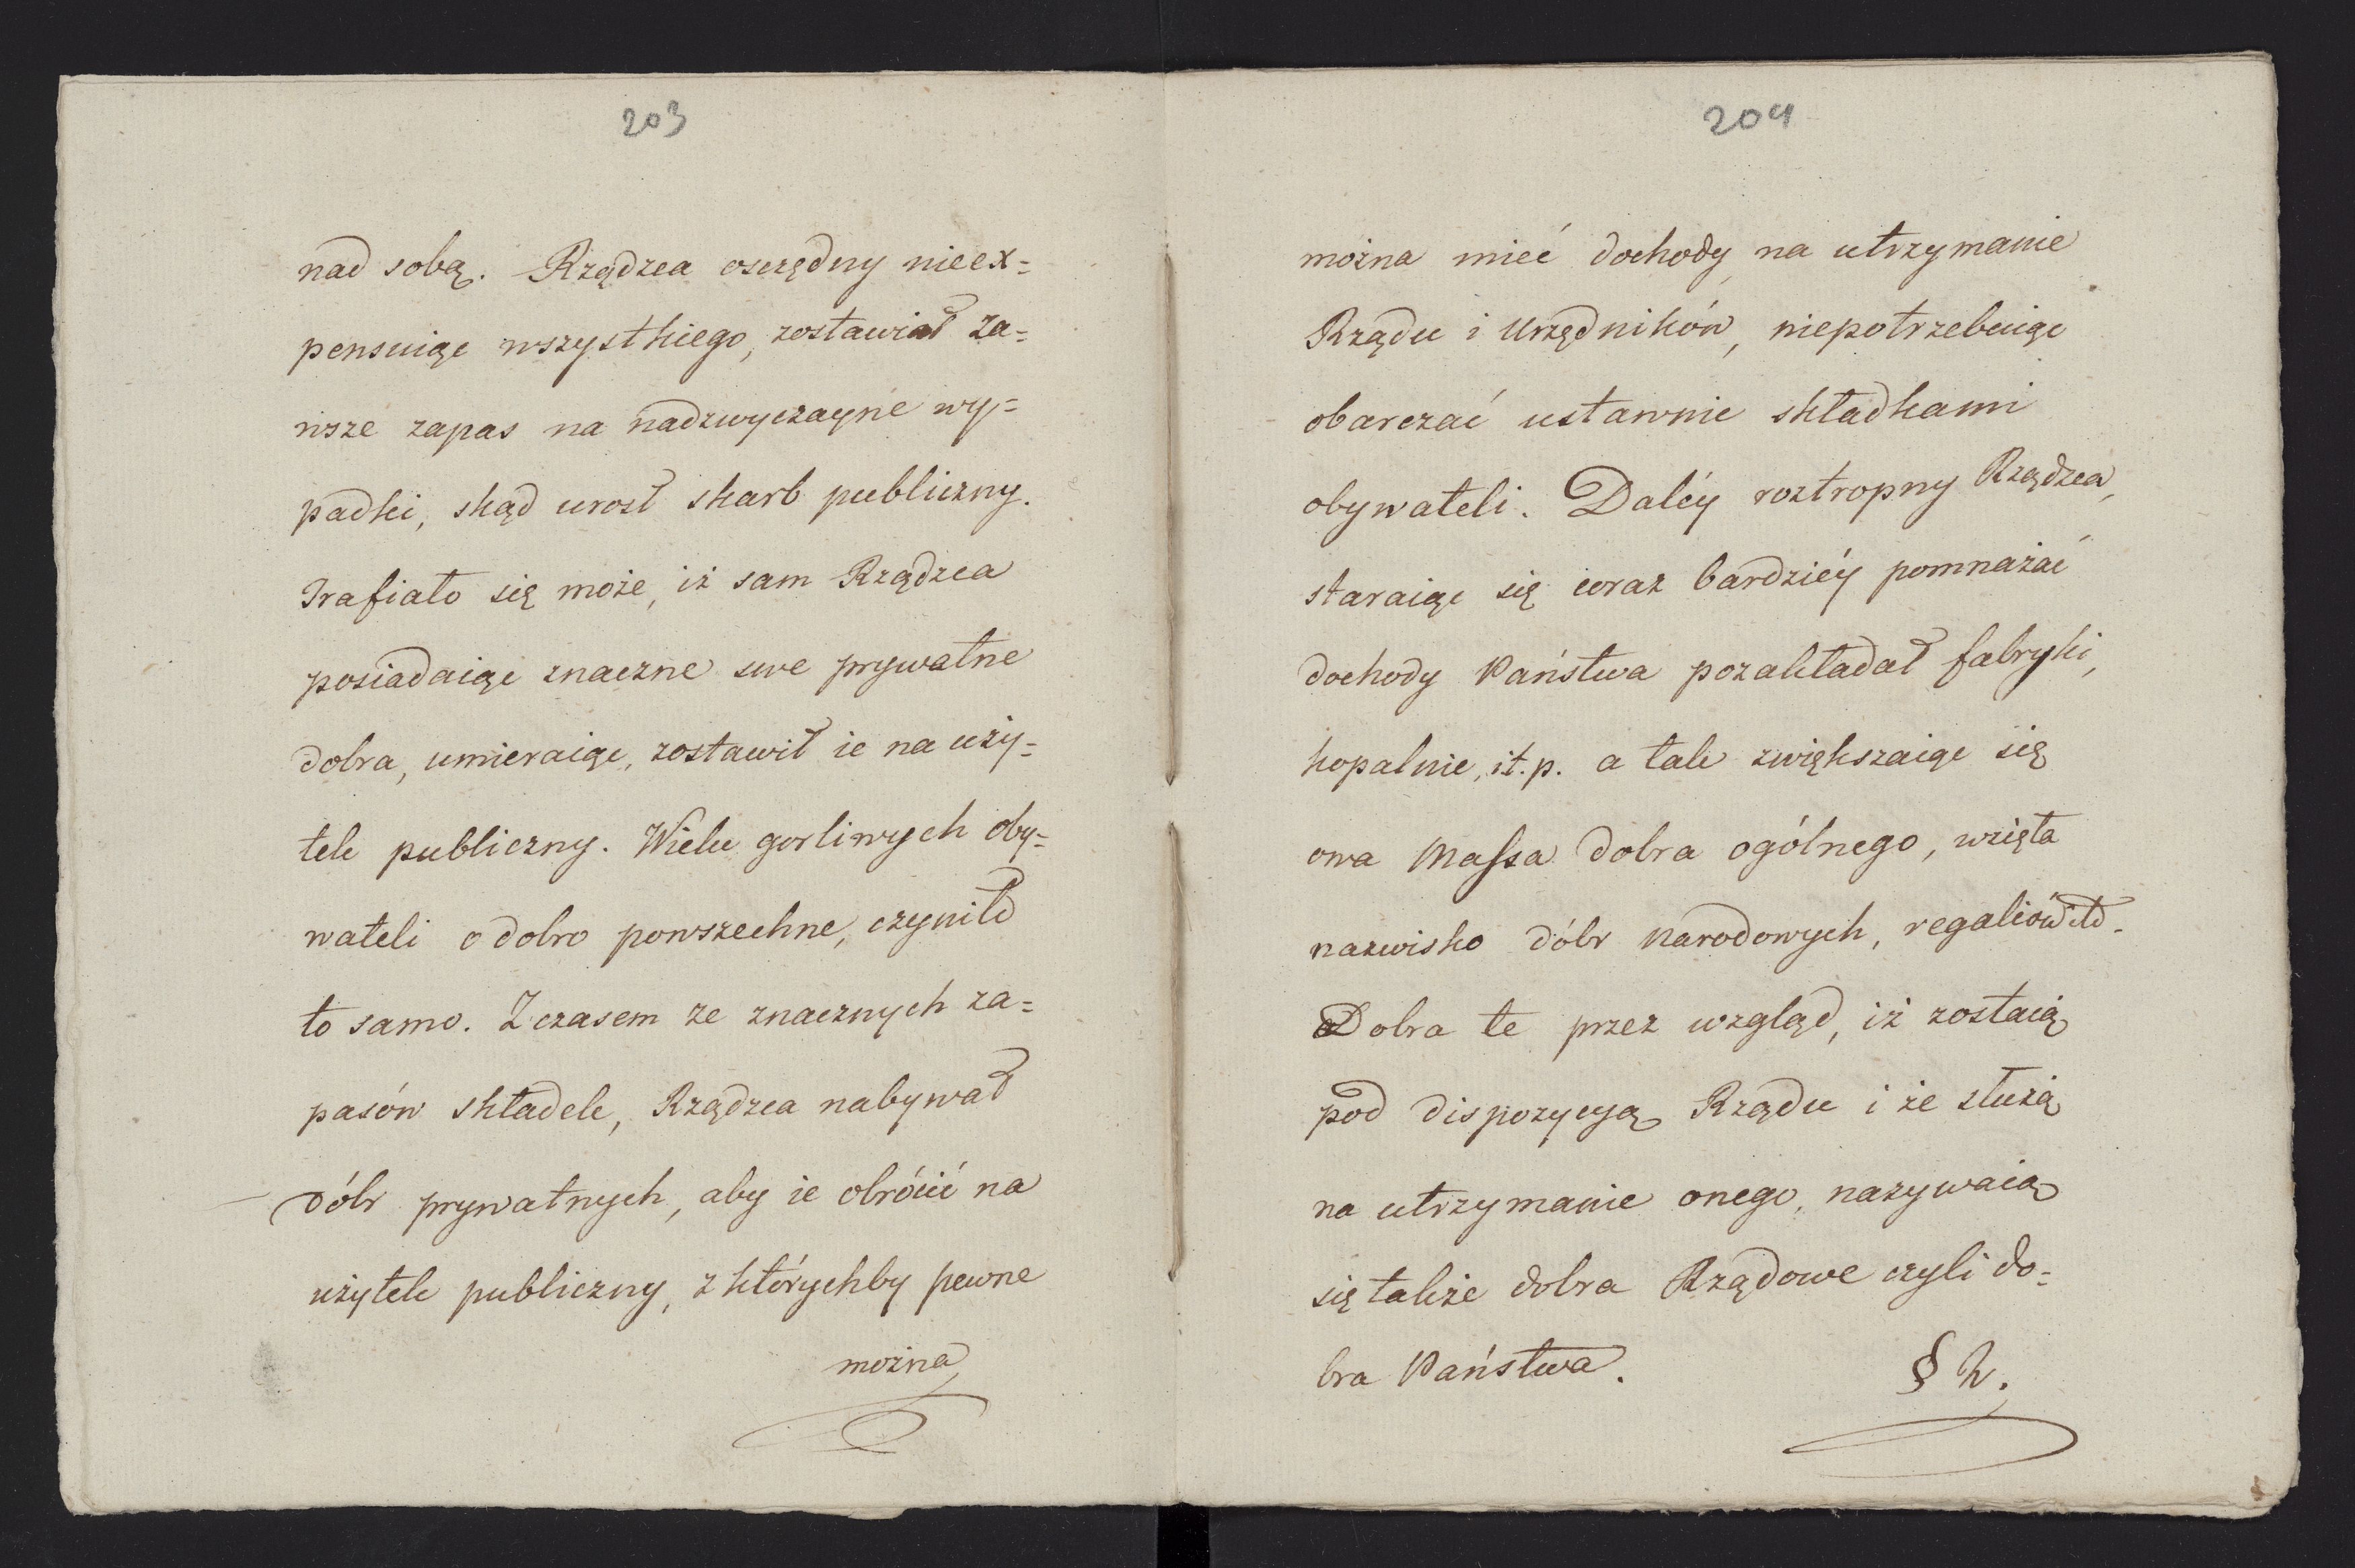 203
nad sobą. Rządzca osczędny nieex=
pensuiąc wszystkiego, zostawiał za=
wsze zapas na nadzwyczayne wy=
padki, skąd urosł skarb publiczny.
Trafiało się może, iż sam Rządzca
posiadaiąc znaczne swe prywatne
dobra, umieraiąc, zostawił ie na uży=
tek publiczny. Wielu gorliwych oby=
wateli o dobro powszechne, czynił
to samo. Z czasem ze znacznych za=
pasów składek, Rządzca nabywał
dóbr prywatnych, aby ie obrócić na
użytek publiczny, z którychby pewne
można
204
można mieć dochody na utrzymanie
Rządu i Urzędników, niepotrzebuiąc
obarczać ustawnie składkami
obywateli. Daléy roztropny Rządzca,
staraiąc się coraz bardziéy pomnażać
dochody Państwa pozakładał fabryki,
kopalnie, it.p. a tak zwiększaiąc się
owa Massa dobra ogólnego, wzięła
nazwisko dóbr Narodowych, regaliów itd.
Dobra te przez wzgląd, iż zostaią
pod dispozycyą Rządu i że służą
na utrzymanie onego, nazywaią
się także dobra Rządowe czyli do=
bra Państwa.
§ 2.